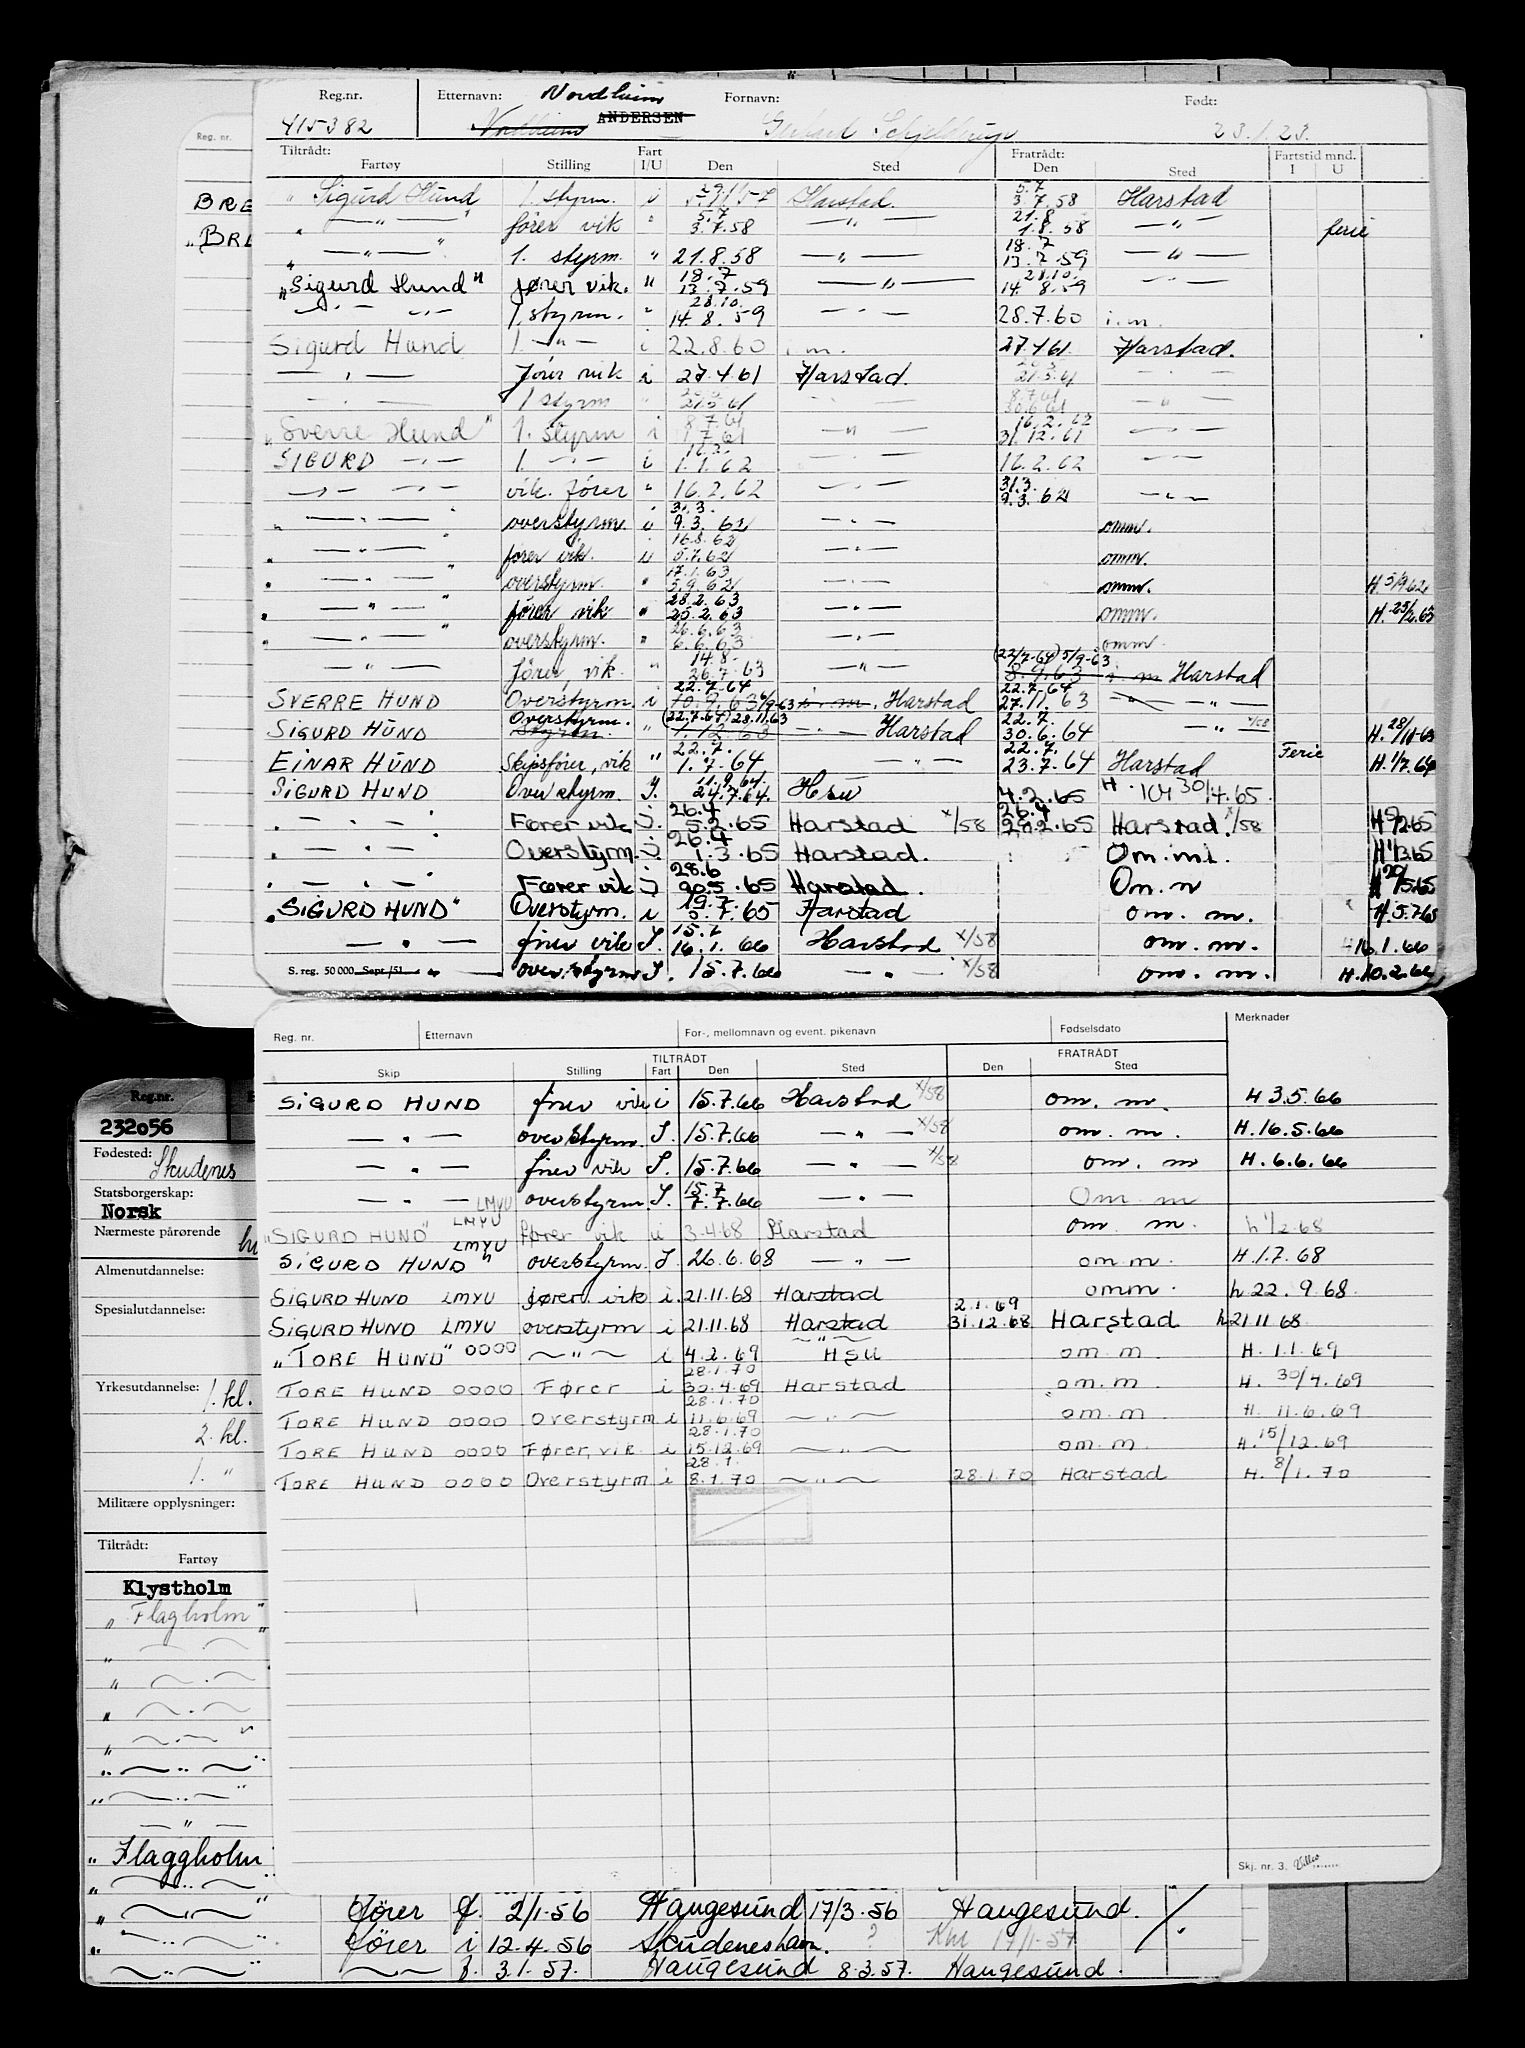 Reg.nr. Etternavn: Nordheim Fornavn: Født:
Reg. nr. 415382 ANDERSEN 23.1.23.
Tiltrådt: Fart Fratrådt: Fartstid mnd.
Fartøy Stilling I/U Den Sted Den Sted I U
" Sigurd Hund 1. styrm. i Harstad 5.7 3.7.58 Harstad
BRE
" — " — " fører vik " 5.7 3.7.58 — " — 21.8 1.8.58 — " — ferie
„BRE
" — " — " 1. styrm. " 21.8.58 — " — 18.7 13.7.59 — " —
„Sigurd Hund" fører vik. " 18.7 13.7.59 — " — 28.10. 14.8.59 — " —
— " — 1. styrm. " 28.10. 14.8.59 — " — 28.7.60 i.m.
Sigurd Hund 1. — " — i 22.8.60 i m. 27.4.61 Harstad.
— " — fører vik i 27.4.61 Harstad. 21.5.61 — " —
— " — 1 styrm " 21.5.61 — " — 8.7.61 30.6.61 — " —
„Sverre Hund" 1. styrm i 8.7.61 1.7.61 — " — 16.2.62 31.12.61 — " —
SIGURD — " — 1. — " — i 16.2. 1.1.62 — " — 16.2.62 — " —
— " — — " — vik. fører " 16.2.62 — " — 31.3. 9.3.62 — " —
" — " — " overstyrm. i 31.3. 9.3.62 — " — omm.
" — " — " fører vik. i 16.8.62 5.7.62 — " — omm.
" — " — " overstyrm. " 17.1.63 5.9.62 — " — omm. H 5/9 62
" — " — " fører vik " 28.2.63 25.2.63 — " — omm. H. 25/2.63
" — " — " overstyrm. " 26.6.63 6.6.63 — " — omm.
— " — fører, vik. " 14.8- 26.7.63 — " — (22/7-64) 5/9-63 8.9.63 i m Harstad
SVERRE HUND Overstyrm. i 22.7.64 10.9.63 6/9-63 i. m. Harstad 22.7.64 27.11.63 — " —
SIGURD HUND Overstyrm. Styrm. " (22.7.64) 28.11.63 1.12.63 — " — Harstad 22.7. 30.6.64 — " — x/58 H. 28/11-63
EINAR HUND Skipsfører, vik " 22.7. 1.7.64 — " — 22.7. 23.7.64 Harstad Ferie H. 1/7.64
SIGURD HUND Overstyrm. I. 11.9.64. 24.7.64. Hsu 4.2.65 H. 30/4.65.
" — " — " Fører vik I. 26.4 5.2.65 Harstad x/58 26.4 Harstad. x/58
" — " — " Overstyrm. I 26.4 1.3.65 Harstad. Om.m. H 1/3.65
" — " — " Fører vik I 28.6 20.5.65 Harstad. Om.m H 20/5.65
„SIGURD HUND" Overstyrm. i 19.7. 5.7.65 Harstad om. m. H.5.7.65
— " — fører vik I. 15.7 16.1.66 Harstad x/58 om. m. H 16.1.66
S. reg. 50 000. Sept./51. — " — overstyrm I. 15.7.66 — " — x/58 om. m. H.10.2.66
Reg. nr. Etternavn For-, mellomnavn og event. pikenavn Fødselsdato Merknader
TILTRÅDT FRATRÅDT
Skip Stilling Fart Den Sted Den Sted
SIGURD HUND fører vik i 15.7.66 Harstad x/58 om. m. H 3.5.66
— " — overstyrm. I. 15.7.66 — " — x/58 om. m. H.16.5.66
— " — fører vik I. 15.7.66 — " — x/58 om. m H.6.6.66
— " — LMYU overstyrm I. 15.7 7.7.66 — " — Om. m
„SIGURD HUND" LMYU fører vik i 3.4.68 Harstad om. m. h 1/2.68
SIGURD HUND" LMYU overstyrm. I 26.6.68 — " — om m. H.1.7.68
SIGURD HUND LMYU fører vik i. 21.11.68 Harstad omm. h 22.9.68.
SIGURD HUND LMYU overstyrm i 21.11.68 Harstad 2.1.69 31.12.68 Harstad h21 11 68.
„TORE HUND" OOOO — " — i 4.2.69 HSU om.m. H. 1.1.69
TORE HUND OOOO Fører i 28.1.70 30.4.69 Harstad om.m. H. 30/4.69
TORE HUND OOOO Overstyrm i 28.1.70 11.6.69 — " — om.m. H. 11.6.69
TORE HUND OOOO Fører, vik. i 28.1.70 15.12.69 — " — om.m. H. 15/12.69
TORE HUND OOOO Overstyrm i 28.1. 8.1.70 — " — 28.1.70 Harstad H. 8/1.70
Skj. nr. 3.
Reg.nr.
232056
Fødested: Skudenes
Statsborgerskap:
Norsk
Nærmeste pårørende
Almenutdannelse:
Spesialutdannelse:
Yrkesutdannelse: 1. kl.
2. kl.
1. "
Militære opplysninger:
Tiltrådt:
Fartøy
Klystholm
„Flagholm"
" — " —
" — " —
" — " —
" — " — "
" — " — "
" — " — "
— " —
„Flaggholm
" — " — "
" — " — " fører f. 2/1.56 Haugesund 17/3.56 Haugesund.
" — " — " fører i 12.4.56 Skudeneshavn. ? 17/1-57
" — " — " — " — f. 3.1.57. Haugesund 8.3.57. Haugesund.